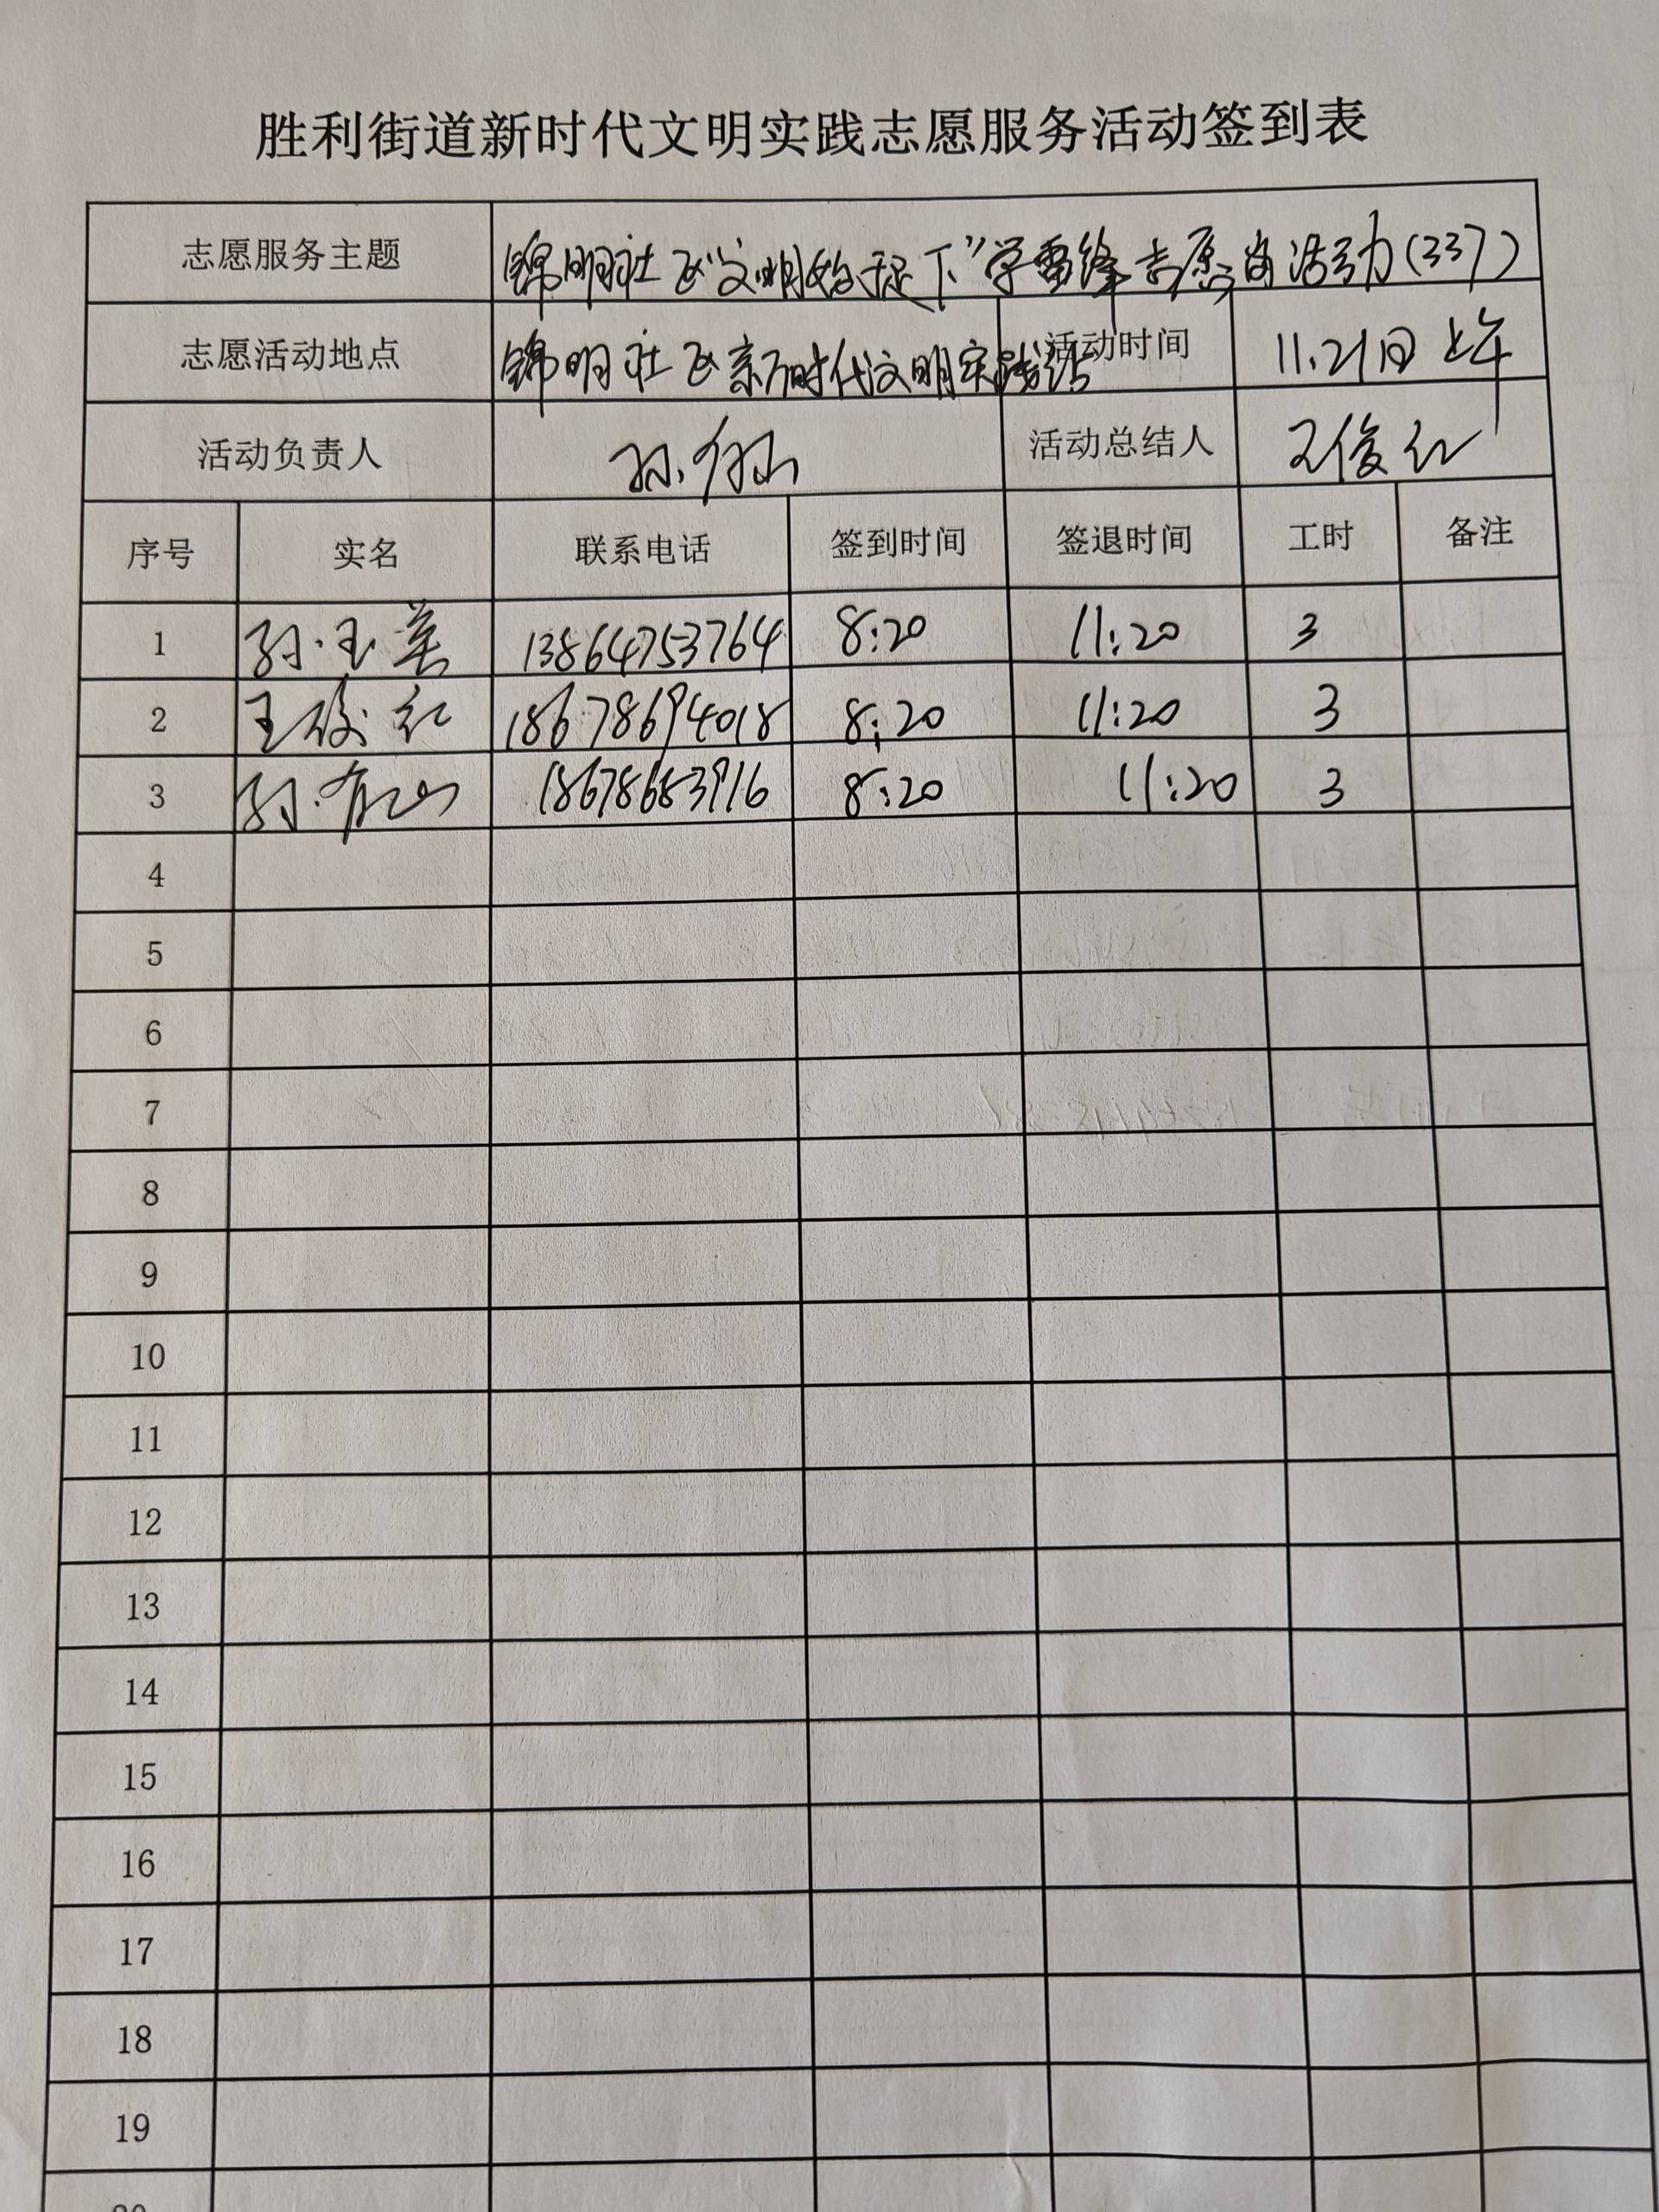 胜利街道新时代文明实践志愿服务活动签到表
志愿服务主题 锦明社区"文明始于足下"学雷锋志愿岗活动(337)
志愿活动地点 锦明社区新时代文明实践站 活动时间 11.21日上午
活动负责人 孙 活动总结人 王俊红
序号 实名 联系电话 签到时间 签退时间 工时 备注
1 孙玉美 13864753764 8:20 11:20 3
2 王俊红 18678694018 8:20 11:20 3
3 孙 18678683916 8:20 11:20 3
4
5
6
7
8
9
10
11
12
13
14
15
16
17
18
19
20